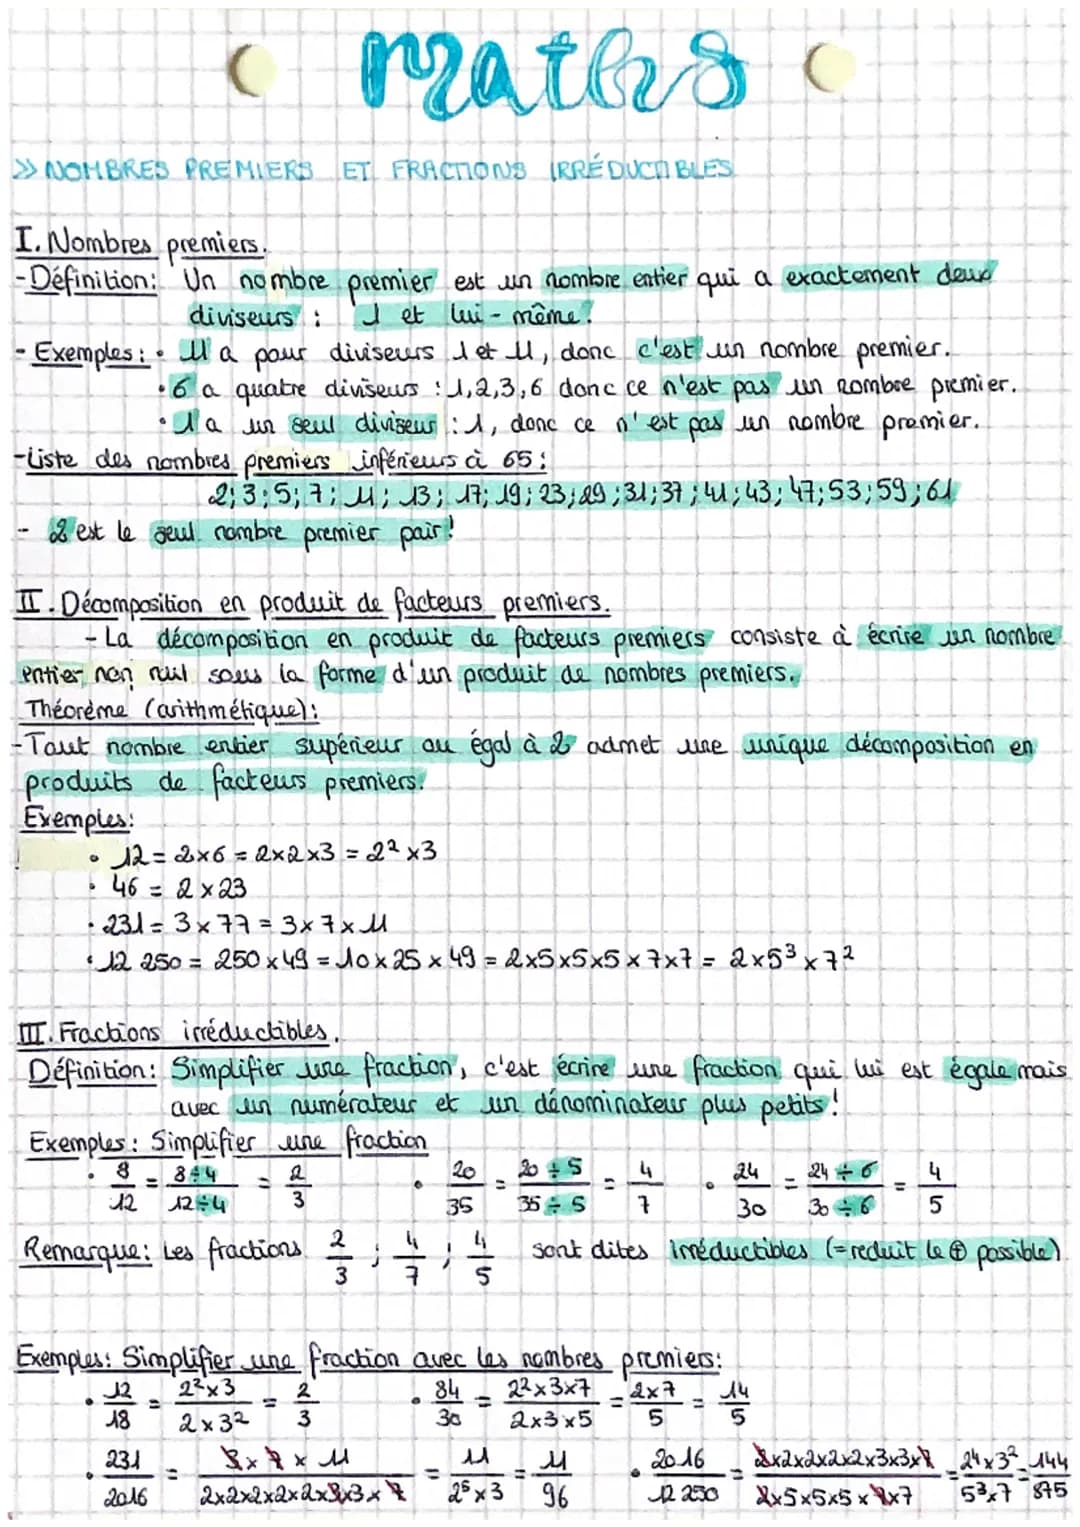 maths
>> NOMBRES PREMIERS ET FRACTIONS IRRÉDUCTIBLES
I. Nombres premiers.
- Définition: Un nombre premier est un nombre entier qui a exactement deux
diviseurs : 1 et lui-même!
- Exemples: • 11 a pour diviseurs 1 et 11, donc c'est un nombre premier.
• 6 a quatre diviseurs : 1,2,3,6 donc ce n'est pas un nombre premier.
• 1 a un seul diviseur : 1, donc ce n'est pas un nombre premier.
- Liste des nombres premiers inférieurs à 65:
2; 3; 5; 7; 11; 13; 17; 19; 23; 29; 31; 37; 41; 43; 47; 53; 59; 61
- 2 est le seul nombre premier pair!
II. Décomposition en produit de facteurs premiers.
- La décomposition en produit de facteurs premiers consiste à écrire un nombre
entier non nul sous la forme d'un produit de nombres premiers.
Théorème (arithmétique):
- Tout nombre entier supérieur ou égal à 2 admet une unique décomposition en
produits de facteurs premiers.
Exemples:
• 12 = 2×6 = 2×2×3 = 2² ×3
• 46 = 2 × 23
• 231 = 3 × 77 = 3 × 7 × 11
• 12 250 = 250 × 49 = 10 × 25 × 49 = 2×5×5×5×7×7 = 2×5³×7²
III. Fractions irréductibles.
Définition: Simplifier une fraction, c'est écrire une fraction qui lui est égale mais
avec un numérateur et un dénominateur plus petits!
Exemples: Simplifier une fraction
• 8/12 = 8÷4/12÷4 = 2/3 • 20/35 = 20÷5/35÷5 = 4/7 • 24/30 = 24÷6/30÷6 = 4/5
Remarque: Les fractions 2/3 ; 4/7 ; 4/5 sont dites irréductibles (=reduit le ⊕ possible)
Exemples: Simplifier une fraction avec les nombres premiers:
• 12/18 = 2²×3/2×3² = 2/3 • 84/30 = 2²×3×7/2×3×5 = 2×7/5 = 14/5
• 231/2016 = 3×7×11/2×2×2×2×2×3×3×7 = 11/2⁵×3 = 11/96 • 2016/12 250 = 2×2×2×2×2×3×3×7/2×5×5×5×7×7 = 2⁴×3²/5³×7 = 144/875